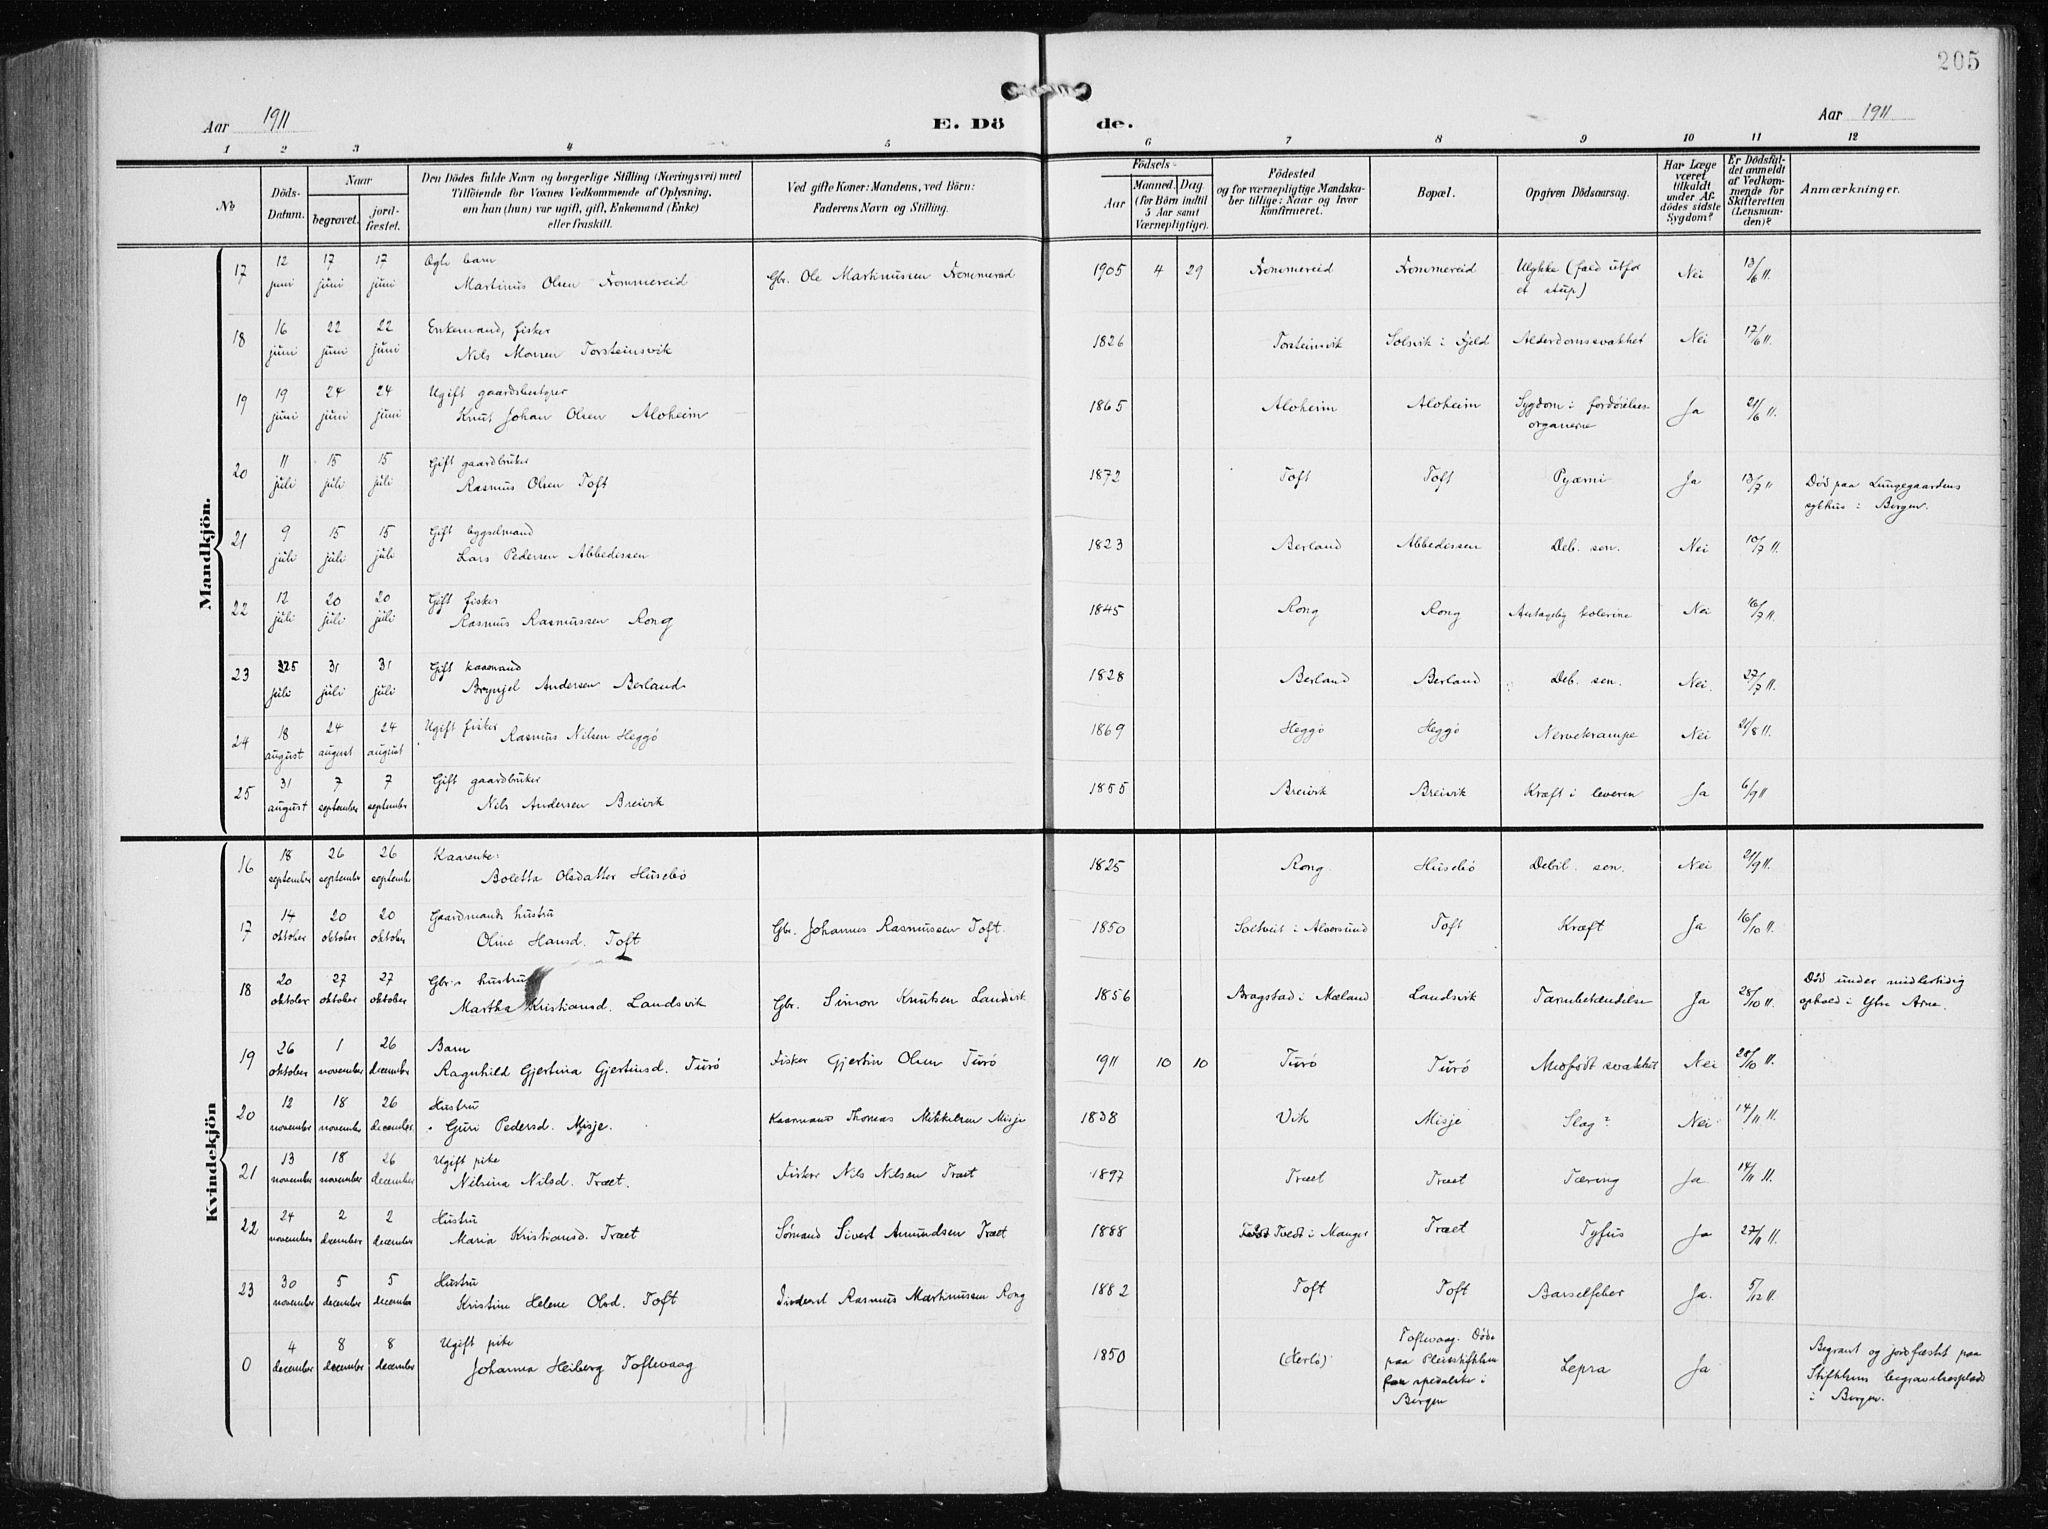 205
Aar 1911 E. Dö de. Aar 1911
1 2 3 4 5 6 7 8 9 10 11 12
No. Döds-Datum. Naar begravet. jordfæstet. Den Dödes fulde Navn og borgerlige Stilling (Næringsvei) med Tilföiende for Voxnes Vedkommende af Oplysning, om han (hun) var ugift, gift, Enkemand (Enke) eller fraskilt. Ved gifte Koner: Mandens, ved Börn: Faderens Navn og Stilling. Födsels- Aar Maaned. Dag (for Börn indtil 5 Aar samt Værnepligtige). Födested og for værnepligtige Mandskaber tillige: Naar og hvor konfirmeret. Bopæl. Opgiven Dödsaarsag. Har Læge været tilkaldt under Afdödes sidste Sygdom? Er Dödsfaldet anmeldt af Vedkommende for Skifteretten (Lensmanden)? Anmærkninger.
Mandkjön.
17 12 juni 17 juni 17 juni Ægte barn Martinus Olsen Frommereid Gbr. Ole Martinussen Frommereid 1905 4 29 Frommereid Frommereid Ulykke (fald utfor et stup) Nei 13/6 11.
18 16 juni 22 juni 22 juni Enkemand, fisker Nils Monsen Torsteinsvik 1826 Torsteinsvik Solsvik i Fjeld Alderdomssvakhet Nei 17/6 11.
19 19 juni 24 juni 24 juni Ugift gaardsbestyrer Knut Johan Olsen Aloheim 1865 Aloheim Aloheim Sygdom i fordøielses-organerne Ja 21/6 11.
20 11 juli 15 juli 15 juli Gift gaardbruker Rasmus Olsen Toft 1872 Toft Toft Pyæmi Ja 13/7 11 Död paa Lungegaardens sykhus i Bergen.
21 9 juli 15 juli 15 juli Gift bygselmand Lars Pedersen Abbedissen 1823 Berland Abbedissen Deb. sen. Nei 10/7 11.
22 12 juli 20 juli 20 juli Gift fisker Rasmus Rasmussen Rong 1845 Rong Rong Antagelig kolerine Nei 16/7 11.
23 25 juli 31 juli 31 juli Gift kaarmand Brynjel Andersen Berland 1828 Berland Berland Deb. sen. Nei. 27/7 11.
24 18 august 24 august 24 august Ugift fisker Rasmus Nilsen Heggö 1869 Heggö Heggö Nervekrampe Nei 21/8 11.
25 31 august 7 september 7 september Gift gaardbruker Nils Andersen Breivik 1855 Breivik Breivik Kræft i leveren Ja 6/9 11
Kvindekjön
16 18 september 26 september 26 september Kaarenke: Boletta Olsdatter Husebö 1825 Rong. Husebö Debil. sen. Nei 21/9 11.
17 14 oktober 20 oktober 20 oktober Gaardmands hustru Oline Hansd. Toft Gbr. Johannes Rasmussen Toft. 1850 Soltveit i Alversund Toft Kræft Ja 16/10 11.
18 20 oktober 27 oktober 27 oktober Gbr.s hustru Martha Kristiansd. Landsvik Gbr. Simon Knutsen Landsvik 1856 Bragstad i Mæland Landsvik Tarmbetændelse Ja 28/10 11. Död under midlertidig ophold i Ytre Arne.
19 26 oktober 1 november 26 december Barn Ragnhild Gjertina Gjertinsd. Turö Fisker Gjertin Olsen Turö 1911 10 10 Turö Turö Medfödt svakhet Nei 28/10 11.
20 12 november 18 november 26 december Hustru Guri Pedersd. Misje. Kaarmand Thomas Mikkelsen Misje 1838 Vik Misje Slag? Nei 14/11 11.
21 13 november 18 november 26 december Ugift pike Nilsina Nilsd. Træet. Fisker Nils Nilsen Træet 1897 Træet Træet Tæring Ja 14/11 11.
22 24 november 2 december 2 december Hustru Maria Kristiansd. Træet Sømand Sivert Amundsen Træet 1888 Tvedt i Manger Træet Tyfus Ja 27/11 11.
23 30 november 5 december 5 december Hustru Kristine Helene Olsd. Toft Rasmus Martinussen Rong 1882 Toft Toft Barselfeber Ja. 5/12 11.
0 4 december 8 december 8 december Ugift pike Johanna Heiberg Toftevaag 1850 (Herlö) Toftevaag. Döde paa Pleiestiftelsen for spedalske i Bergen Lepra Ja Begravet og jordfæstet paa Stiftelsens begravelsesplads i Bergen.